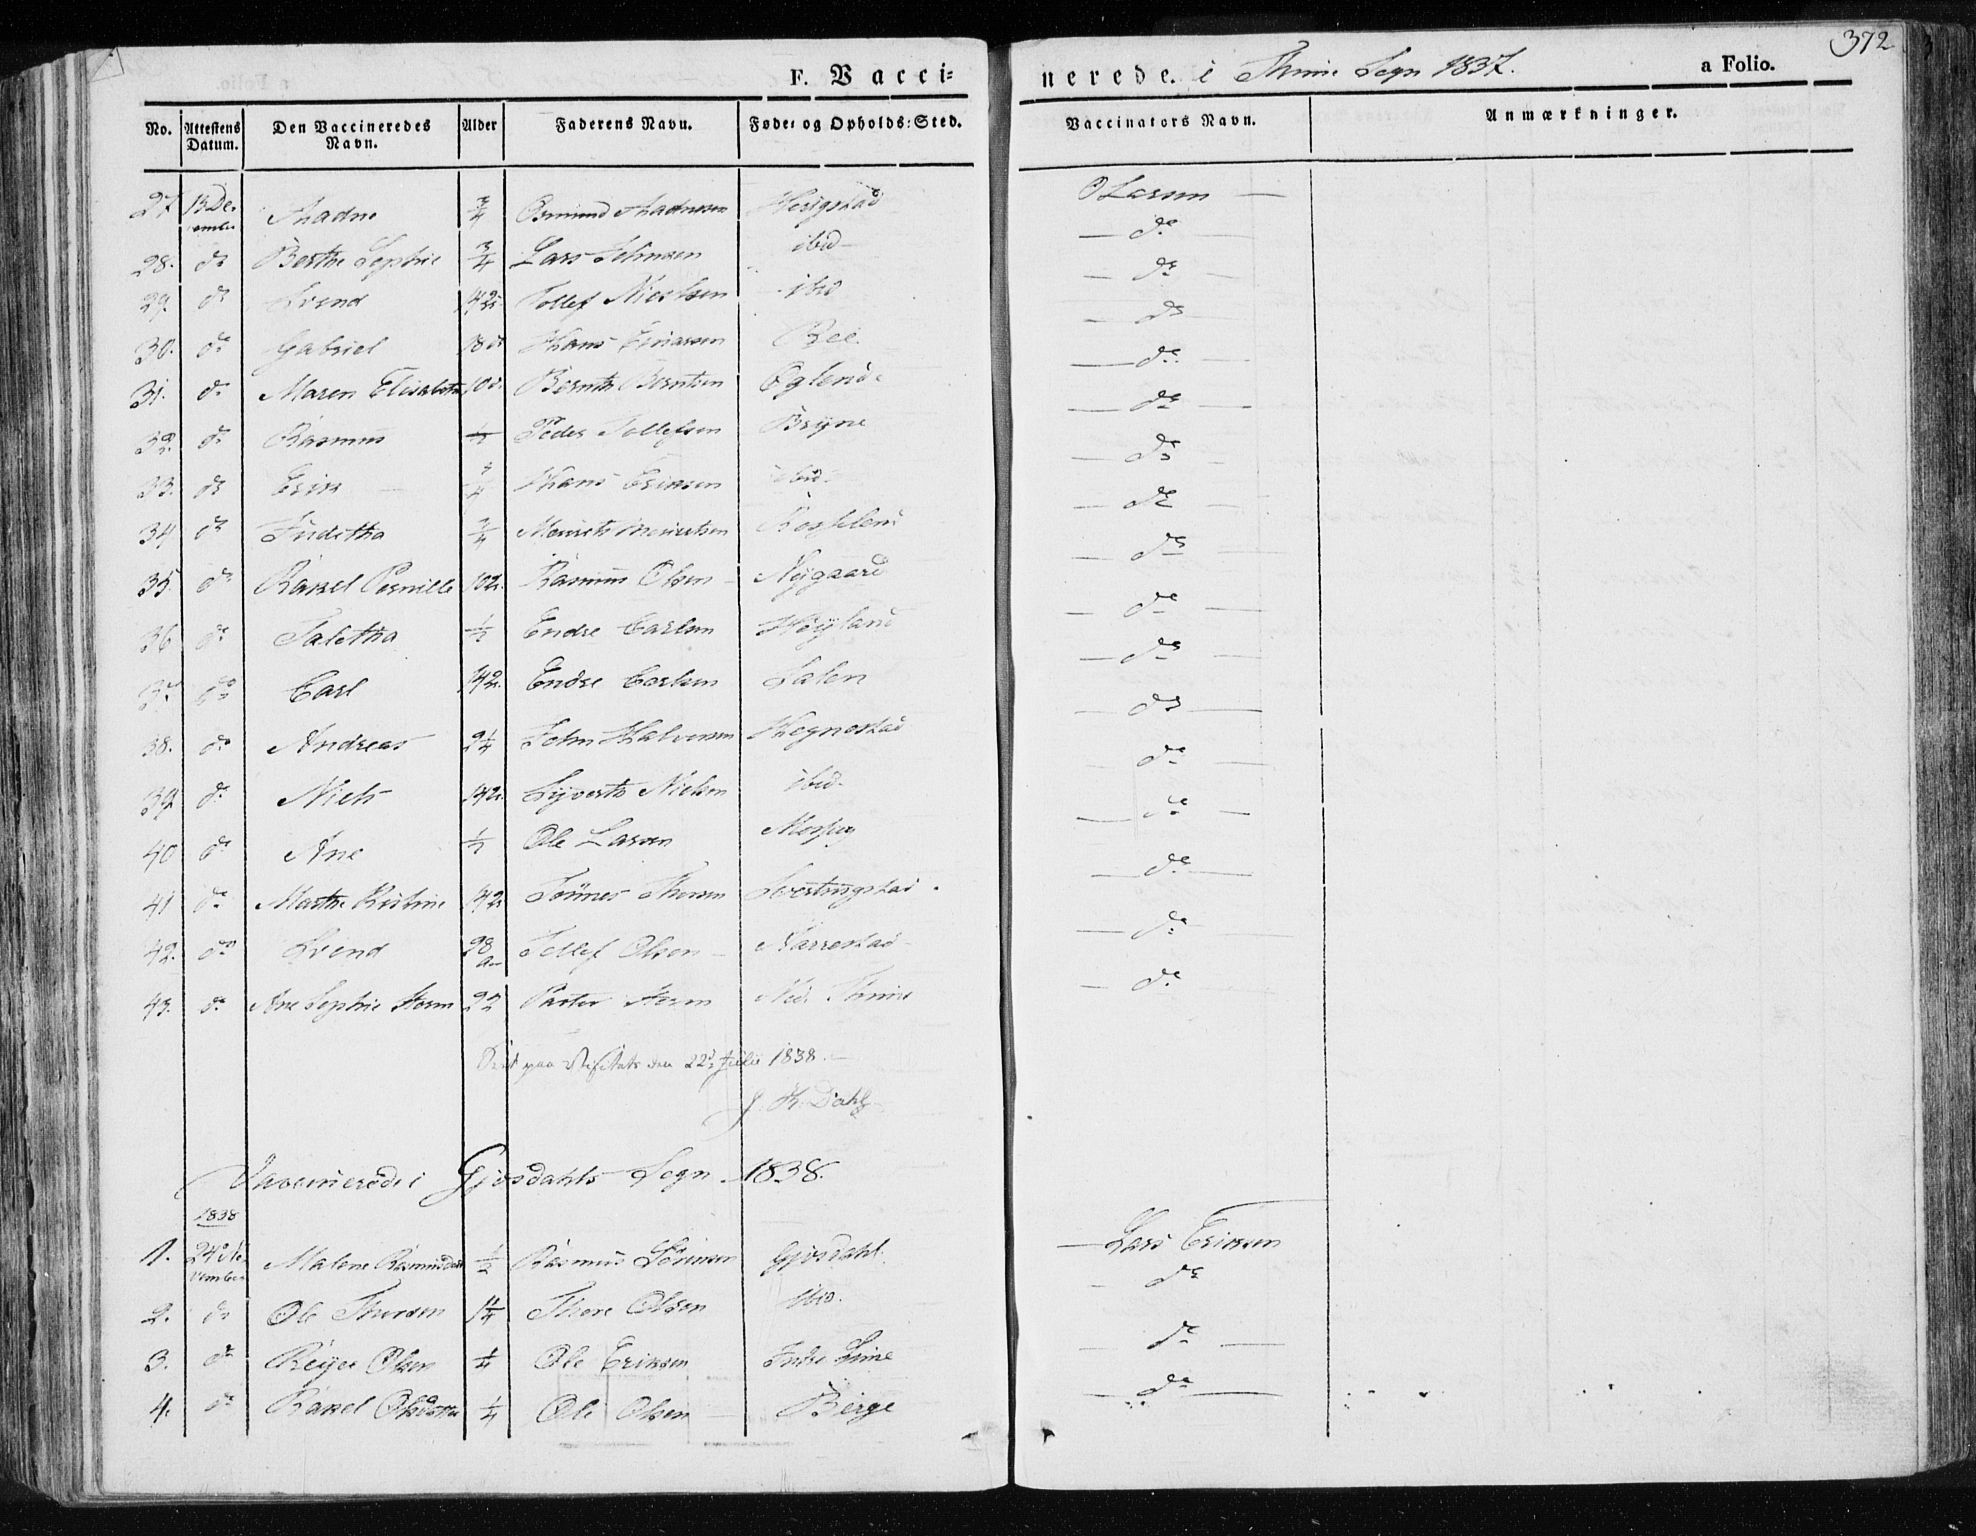 372
F. Vacci= nerede. i Thime Sogn 1837. a Folio.
No. Attestens Datum. Den Vaccineredes Navn. Alder Faderens Navn. Føde= og Opholds=Sted. Vaccinators Navn. Anmærkninger.
27 13 December Thadne 3/4 Osmund Thadnesen Herigstad O Larsen
28. do Berthe Sophie 3/4 Lars Johnsen ibid do
29. do Svend Tollef Nielsen ibid do
30. do Gabriel Hans Einarsen Ree do
31. do Maren Elisabeth Bernth Berntsen Eglend do
32. do Rasmus 1/2 Peder Tollefsen Bryne do
33. do Erik Hans Eriksen ibid. do
34 do Juditha 3/4 Mourits Mouritsen do
35. do Rakel Pernille Rasmus Olsen Nygaard do
36 do Taletha 1/2 Endre Carlsen Høyland do
37. do Carl Endre Carlsen Salen do
38. do Andreas 2 1/4 John Halvorsen Hognestad do
39 do Niels Syvert Nielsen ibid. do
40 do Ane 1/2 Ole Larsen do
41 do Marthe Kristine Tønnes Thorsen do
42. do Svend Tollef Olsen Norrestad do
43. do Ane Sophie Storm 22 Pastor Storm Ned. Thime do
paa Visitats den 22d Julii 1838.
J. K. Dahl
Vaccinerede i Gjesdahls Sogn 1838.
1838
1. 24de November Malene Rasmusdatter 1/2 Rasmus Sørensen Gjesdahl. Lars Eriksen
2. do Ole Thoresen Thore Olsen ibid. do
3. do Reyer Olsen 1/4 Ole Eriksen Indre Lime do
4. do Rakel Olsdatter 1/4 Ole Olsen Berge do